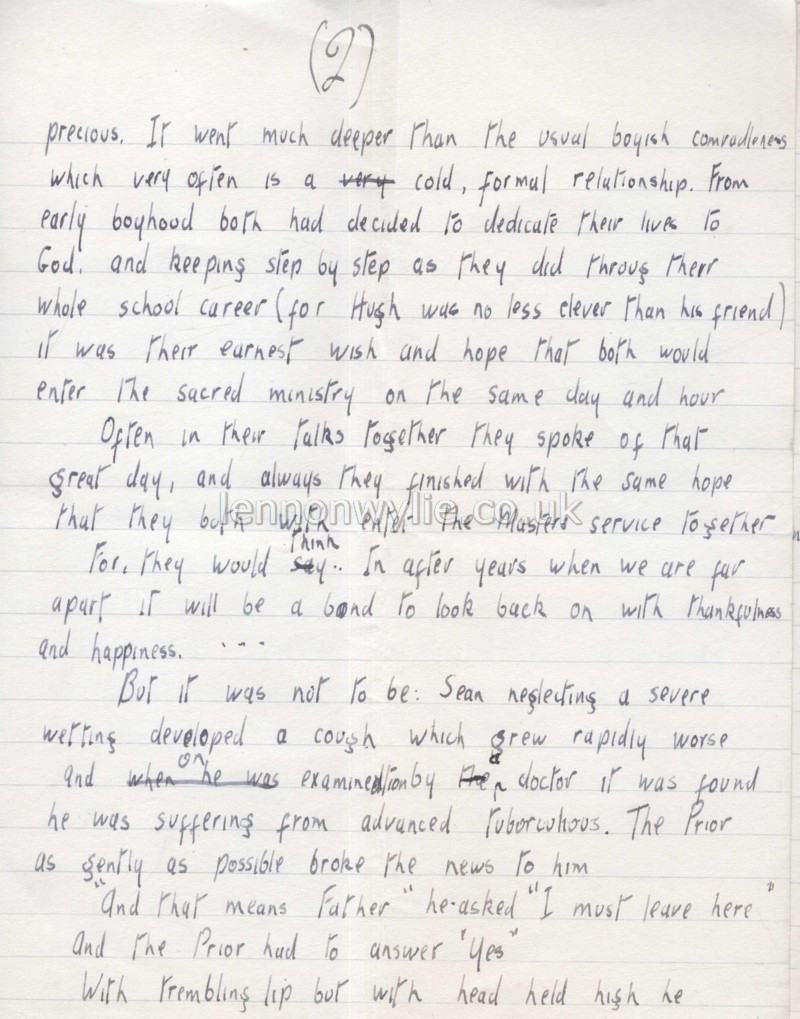 (2)
precious. It went much deeper than the usual boyish comradleness
which very often is a very cold, formal relationship. From
early boyhood both had decided to dedicate their lives to
God. and keeping step by step as they did throug their
whole school career (for Hugh was no less clever than his friend)
it was their earnest wish and hope that both would
enter the sacred ministry on the same day and hour
Often in their talks together they spoke of that
great day, and always they finished with the same hope
that they both enter the Masters service together
lennonwylie.co.uk
think
For, they would say.. In after years when we are far
apart it will be a bond to look back on with thankfulness
and happiness. ...
But it was not to be: Sean neglecting a severe
wetting developed a cough which grew rapidly worse
on a
and when he was examination by the doctor it was found
he was suffering from advanced tuborculious. The Prior
as gently as possible broke the news to him
"And that means Father" he asked "I must leave here"
And the Prior had to answer "Yes"
With trembling lip but with head held high he